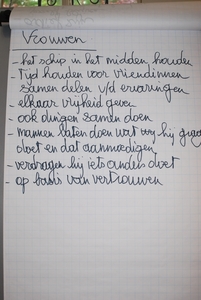 Vrouwen
- het schip in het midden houden
- tijd houden voor vriendinnen
samen delen v/d ervaringen
- elkaar vrijheid geven
- ook dingen samen doen
- mannen laten doen wat hij graag
doet en dat aanmoedigen
- verdragen hij iets anders doet
- op basis van vertrouwen